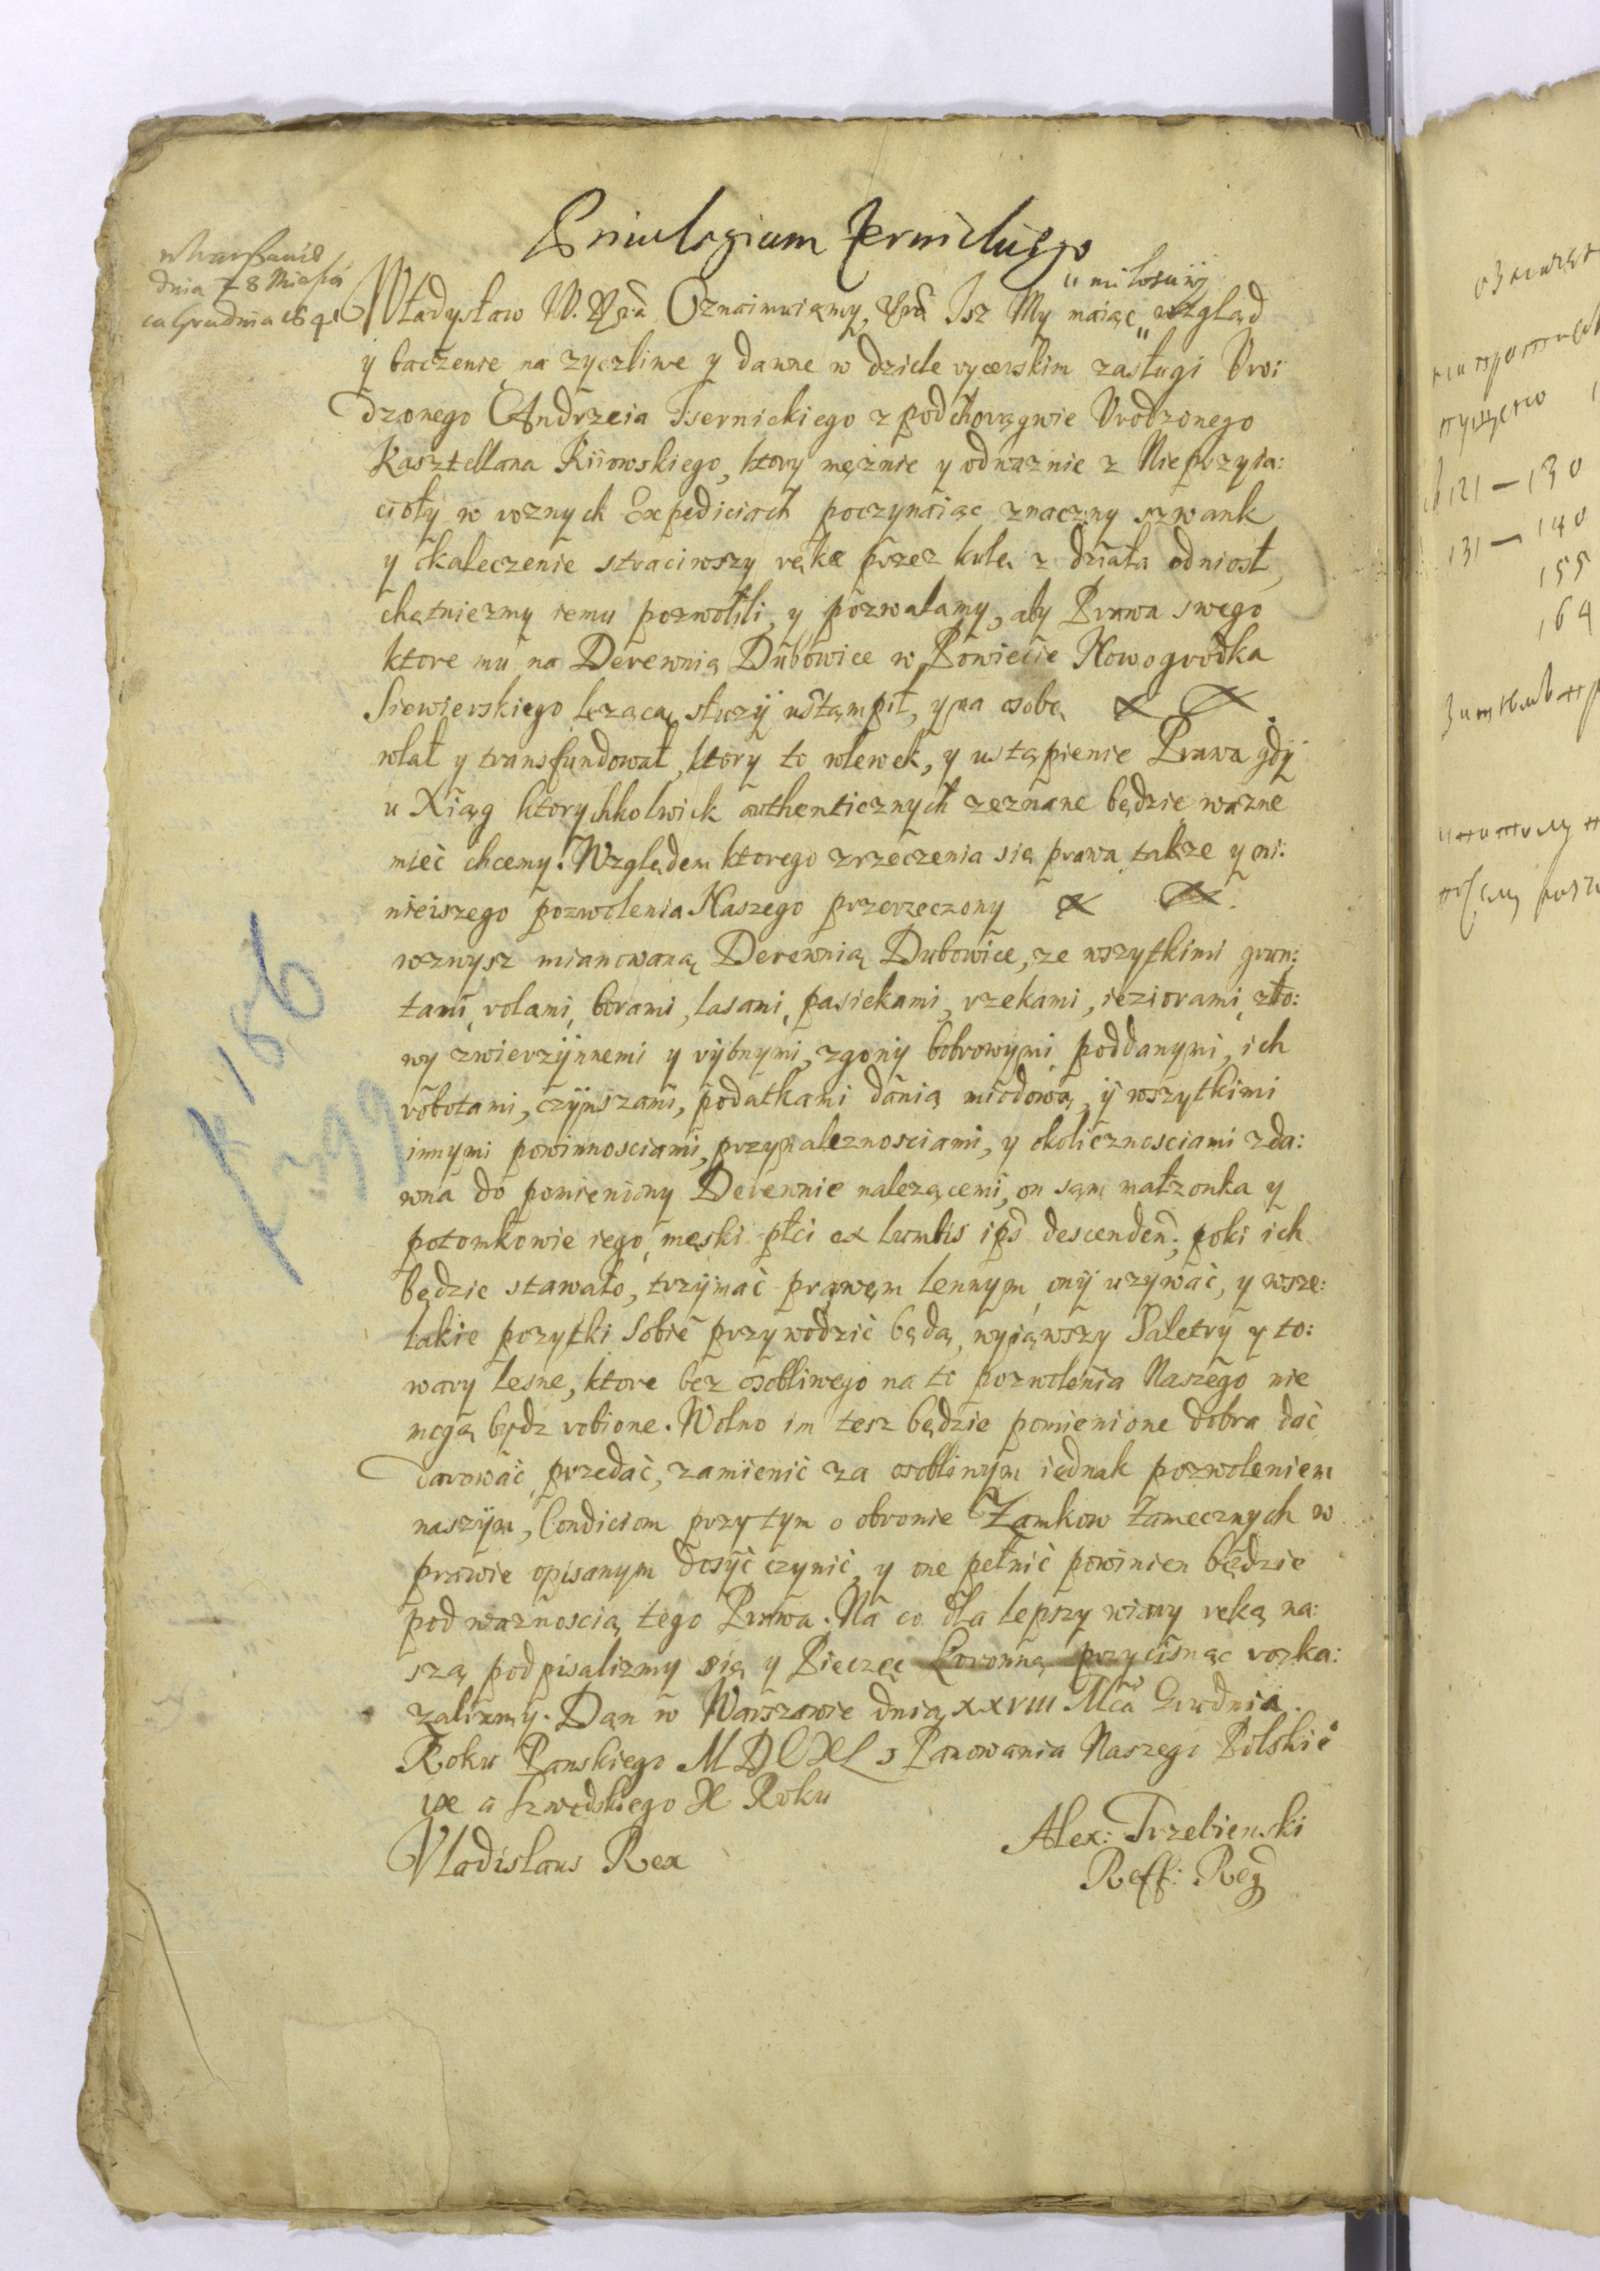 Priuilegium Zernickiego
w Warszawie
dnia 28 Miesią
ca Grudnia 1640
miłosciwy
Władysław IV. Oznaimuiemy, Isz My maiąc wzgląd
y baczenie na zyczliwe y dawne w dziele rycerskim zasługi Uro:
dzonego Andrzeia Tsernickiego z pod chorągwie Urodzonego
Kasztellana Kiiowskiego, ktory mężnie y odwaznie z Nieprzyia:
cioły w roznych Expediciach poczynaiąc znaczny szwank
y okaleczenie straciwszy rękę przez kulę z działa odniosł,
chętniezmy iemu pozwolili, y pozwalamy, aby Prawa swego
ktore mu na Derewnią Dubowice w Powiecie Nowogrodka
Siewierskiego lezącą słuzy ustąmpił, y na osobę
wlał y transfundował, ktory to wlewek, y ustąpienie Prawa gdy
u Xiąg ktorychkolwiek authenticznych zeznane będzie wazne
mieć chcemy. Względem ktorego zrzeczenia się prawa, takze y ni:
nieiszego pozwolenia Naszego przerzeczony
wzwysz mianowaną Derewnią Dubowice, ze wszytkimi grun:
tami, rolami, borami, lasami, pasiekami, rzekami, ieziorami, zło:
wy zwierzynnemi y rybnymi, zgony bobrowymi, poddanymi, ich
robotami, czynszami, podatkami danią miodową, y wszytkimi
innymi powinnosciami, przynaleznosciami, y okolicznosciami zda:
wna do pomieniony Derewnie nalezącemi, on sąm małzonka y
potomkowie iego męski płci ex lumbis ips descenden: poki ich
będzie stawało, trzymać prawem lennym, ony uzywać, y wsze:
lakie pozytki Sobie przywodzić będą, wyiąwszy Saletry y to:
wary lesne, ktore bez osobliwego na to pozwolenia Naszego nie
mogą bydz robione. Wolno im tesz będzie pomienione dobra dać
darować, przedać, zamienić za osobliwym iednak pozwoleniem
naszym, Condiciom przytym o obronie Zamkow zamecznych w
prawie opisanym dosyć czynić, y one pełnić powinien będzie
pod waznoscią tego Prawa. Na co dla lepszy wiary ręką na:
szą podpisalizmy się y Pieczęć Koronną przycisnąc rozka:
zalizmy. Dan w Warszawie dnia XXVIII Mca Grudnia.
Roku Panskiego MDCXL Panowania Naszego Polskie
IX a Szwedskiego X Roku
Vladislaus Rex
Alex: Trzebienski
Reff: Reg
186
121 — 130
131 — 140
155
164